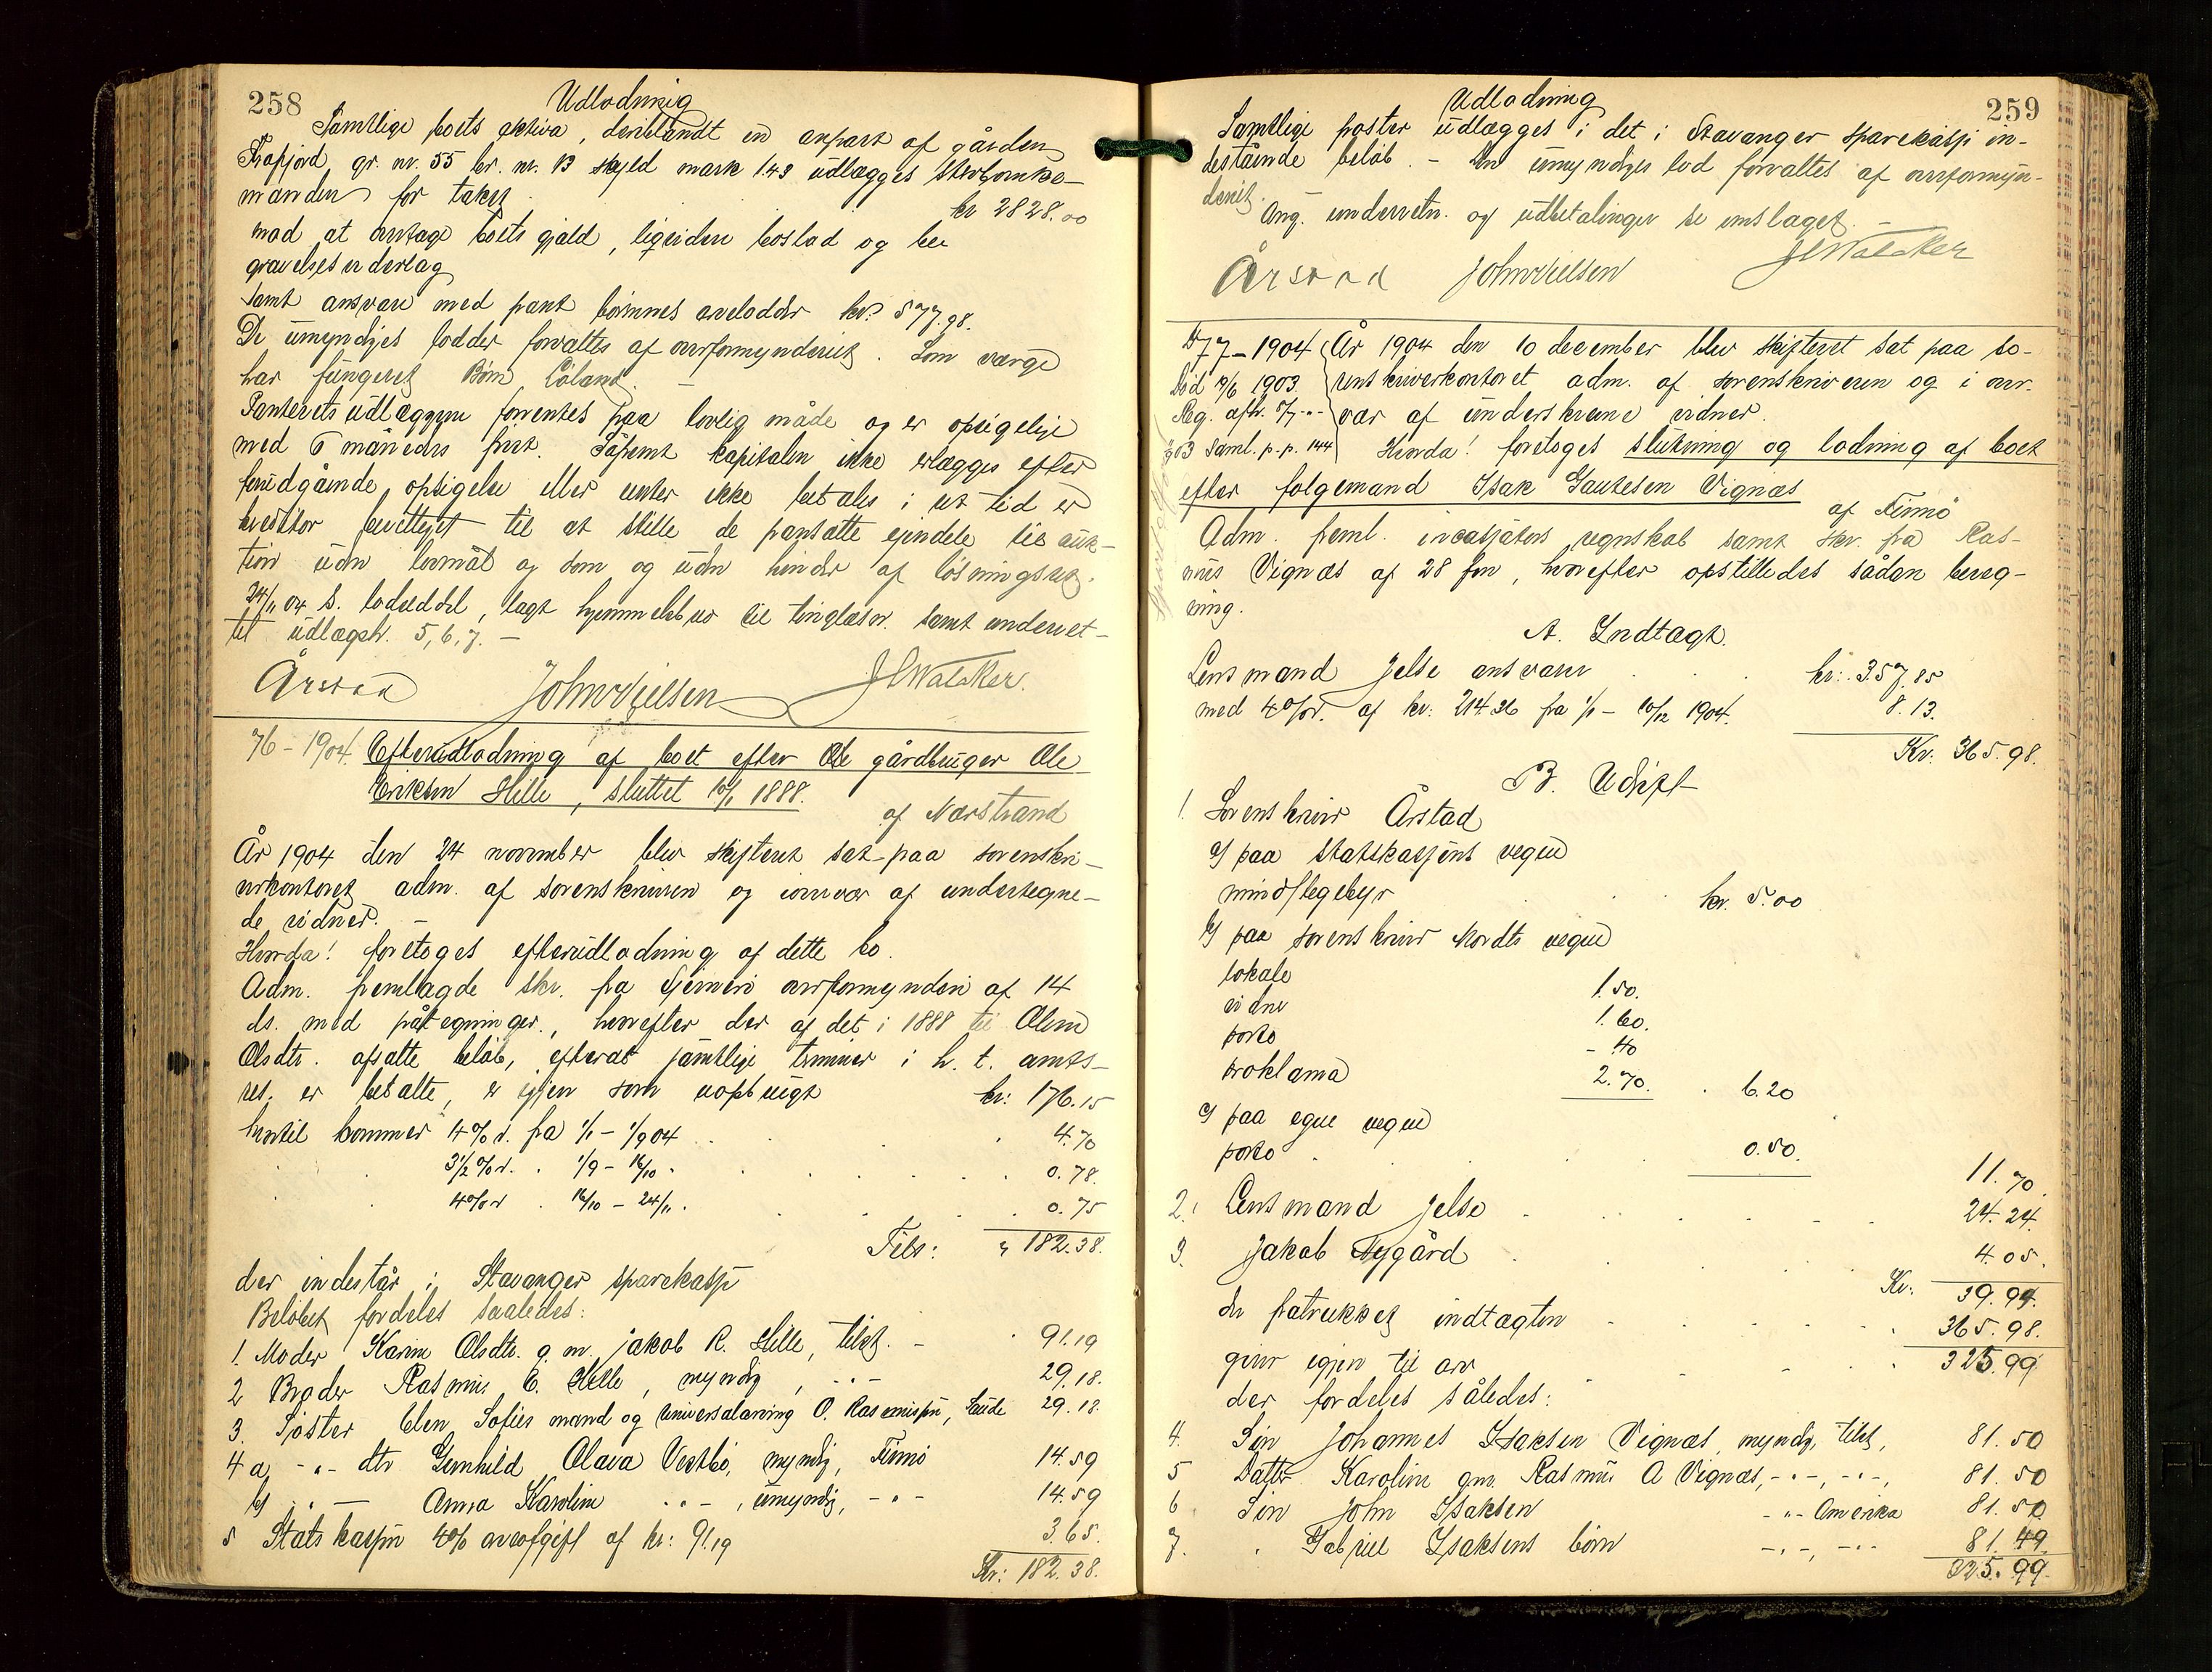 258
Udlodning
Samtlige boets aktiva, deriblandt en anpart af gården
Frafjord gr. nr. 55 br. nr. 13 skyld mark 1.43 udlægges
manden for takst kr 2828.00
mod at overtage boets gjæld, ligesiden bostad og be
gravelsesunderlag
samt ansvare med pant børnenes arvelodder kr: 577.98.
De umyndiges lodder forvaltes af overformynderiet. Som værge
har fungeret Børn Løland. –
Panterets udlæggene forrentes paa lovlig måde og er opsigelige
med 6 måneders frist. Såfremt kapitalen ikke erlægges efter
forudgående opsigelse eller renter ikke betales i ret tid er
kreditor berettiget til at stille de pantsatte eiendele til auk-
tion uden lovmål og dom og uden hinder af løsningsret.
24/11 04 s. lodseddel, lagt hjemmelsbrev til tinglæsn. samt underret-
til udlægsh. 5, 6, 7. –
Årstad John Nielsen J C Walcker.
76 – 1904. Efterudlodning af boet efter gårdbruger Ole
Eriksen Hille, sluttet 10/1 1888.
af Nærstrand
År 1904 den 24 november blev skifteret sat paa sorenskri-
verkontoret adm. af sorenskriveren og i overvær af undertegne-
de vidner. –
Hvorda! foretoges efterudlodning af dette bo.
Adm. fremlagde skr. fra overformynderi af 14
ds. med påtegninger, hvorefter der af det i 1888 til
Olsdtr. afsatte beløb, efterat samtlige terminer i h. t. amts-
res. er betalte, er igjen som uopbrugt kr: 176.15
hertil kommer 4% r. fra 1/1 – 1/9 04 4.70
3½ % r. . 1/9 – 16/10 . 0.78.
4% r . 16/10 – 24/11 . 0.75
Tils: " 182.38.
der indestår i Stavanger sparekasse
Beløbet fordeles saaledes:
1. Moder Karen Olsdtr. g. m. Jakob R. Hille, tilst. – 91.19
2 Broder Rasmus E. Hille, myndig, - " - 29.18.
3. Søster Elen Sofies mand og universalarving O. Rasmussen, Saude 29.18
4 a, - " - dtr Gunhild Olava Vestbø, myndig, Finnø 14.59
b, " – Anna Karoline " " – , umyndig, - " - 14.59
5 Statskassen 4% arveafgift af kr: 91.19 3.65.
Kr: 182.38.
259
Udlodning
Samtlige poster udlægges i det i Stavanger sparekasse in-
destående beløb. – Den umyndiges lod forvaltes af overformyn-
deriet.
Ang. underretn. og udbetalinger se omslaget. –
Årstad John Nielsen J C Walcker
77 – 1904
Død 19/6 1903.
Reg. afh. 8/7 - " -
Saml. p. p. 144
År 1904 den 10 december blev skifteret sat paa so-
renskriverkontoret adm. af sorenskriveren og i over-
vær af underskrevne vidner.
Hvorda! foretoges slutning og lodning af boet
efter følgemand Isak Gautesen Vignæs
af Finnø
Adm. freml. incassators regnskab samt skr. fra Ras-
mus Vignæs af 28 f m, hvorefter opstilledes sådan bereg-
ning.
A. Indtægt.
Lensmand Jelse ansvarer kr: 357.85
med 4% r. af kr: 214.36 fra 1/1 – 10/12 1904. 8.13.
Kr: 365.98.
B. Udgift
1. Sorenskriver Årstad
a) paa statskassens vegne
mindstegebyr kr. 5.00
b) paa sorenskriver Mordts vegne
lokale 1.50.
vidne 1.60.
porto – 40
proklama 2.70. . 6.20
c) paa egne vegne
porto 0.50.
11.70.
2. Lensmand Jelse 24.24.
3. Jakob Nygård 4.05.
Kr: 39.99.
der fratrukket indtægten 365.98.
giver igjen til arv 325.99
der fordeles således:
4. Søn Johannes Isaksen Vignæs, myndig, tilst, 81.50
5 Datter Karoline gm. Rasmus A Vignæs, - " -, - " -, 81.50
6 Søn John Isaksen - " - Amerika 81.50
7. " Gabriel Isaksens børn - " -, - " - 81.49.
325.99.